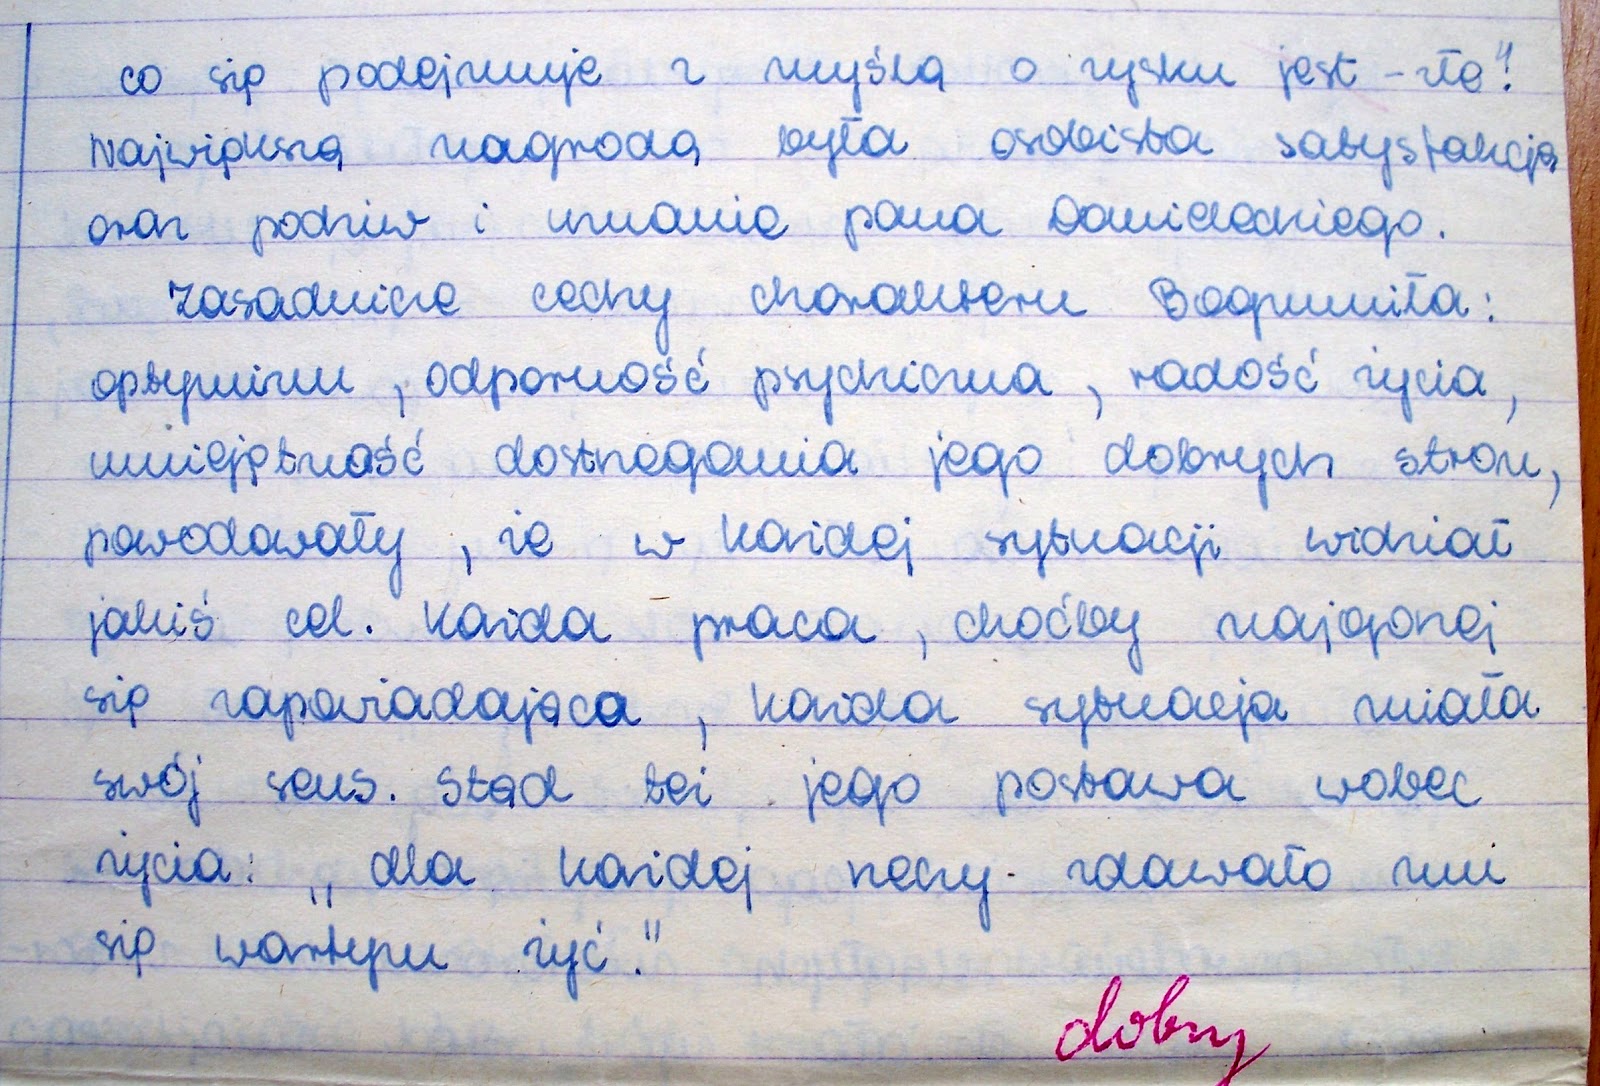 co się podejmuje z myślą o zysku jest - złe"!
Największą nagrodą była osobista satysfakcja
oraz podziw i uznanie pana Daniełeckiego.
Zasadnicze cechy charakteru Bogumiła:
optymizm, odporność psychiczna, radość życia,
umiejętność dostrzegania jego dobrych stron,
powodowały, że w każdej sytuacji widział
jakiś cel. Każda praca, choćby najgorzej
się zapowiadająca, każda sytuacja miała
swój sens. Stąd też jego postawa wobec
życia: „dla każdej rzeczy zdawało mi
się wartym żyć."
dobry